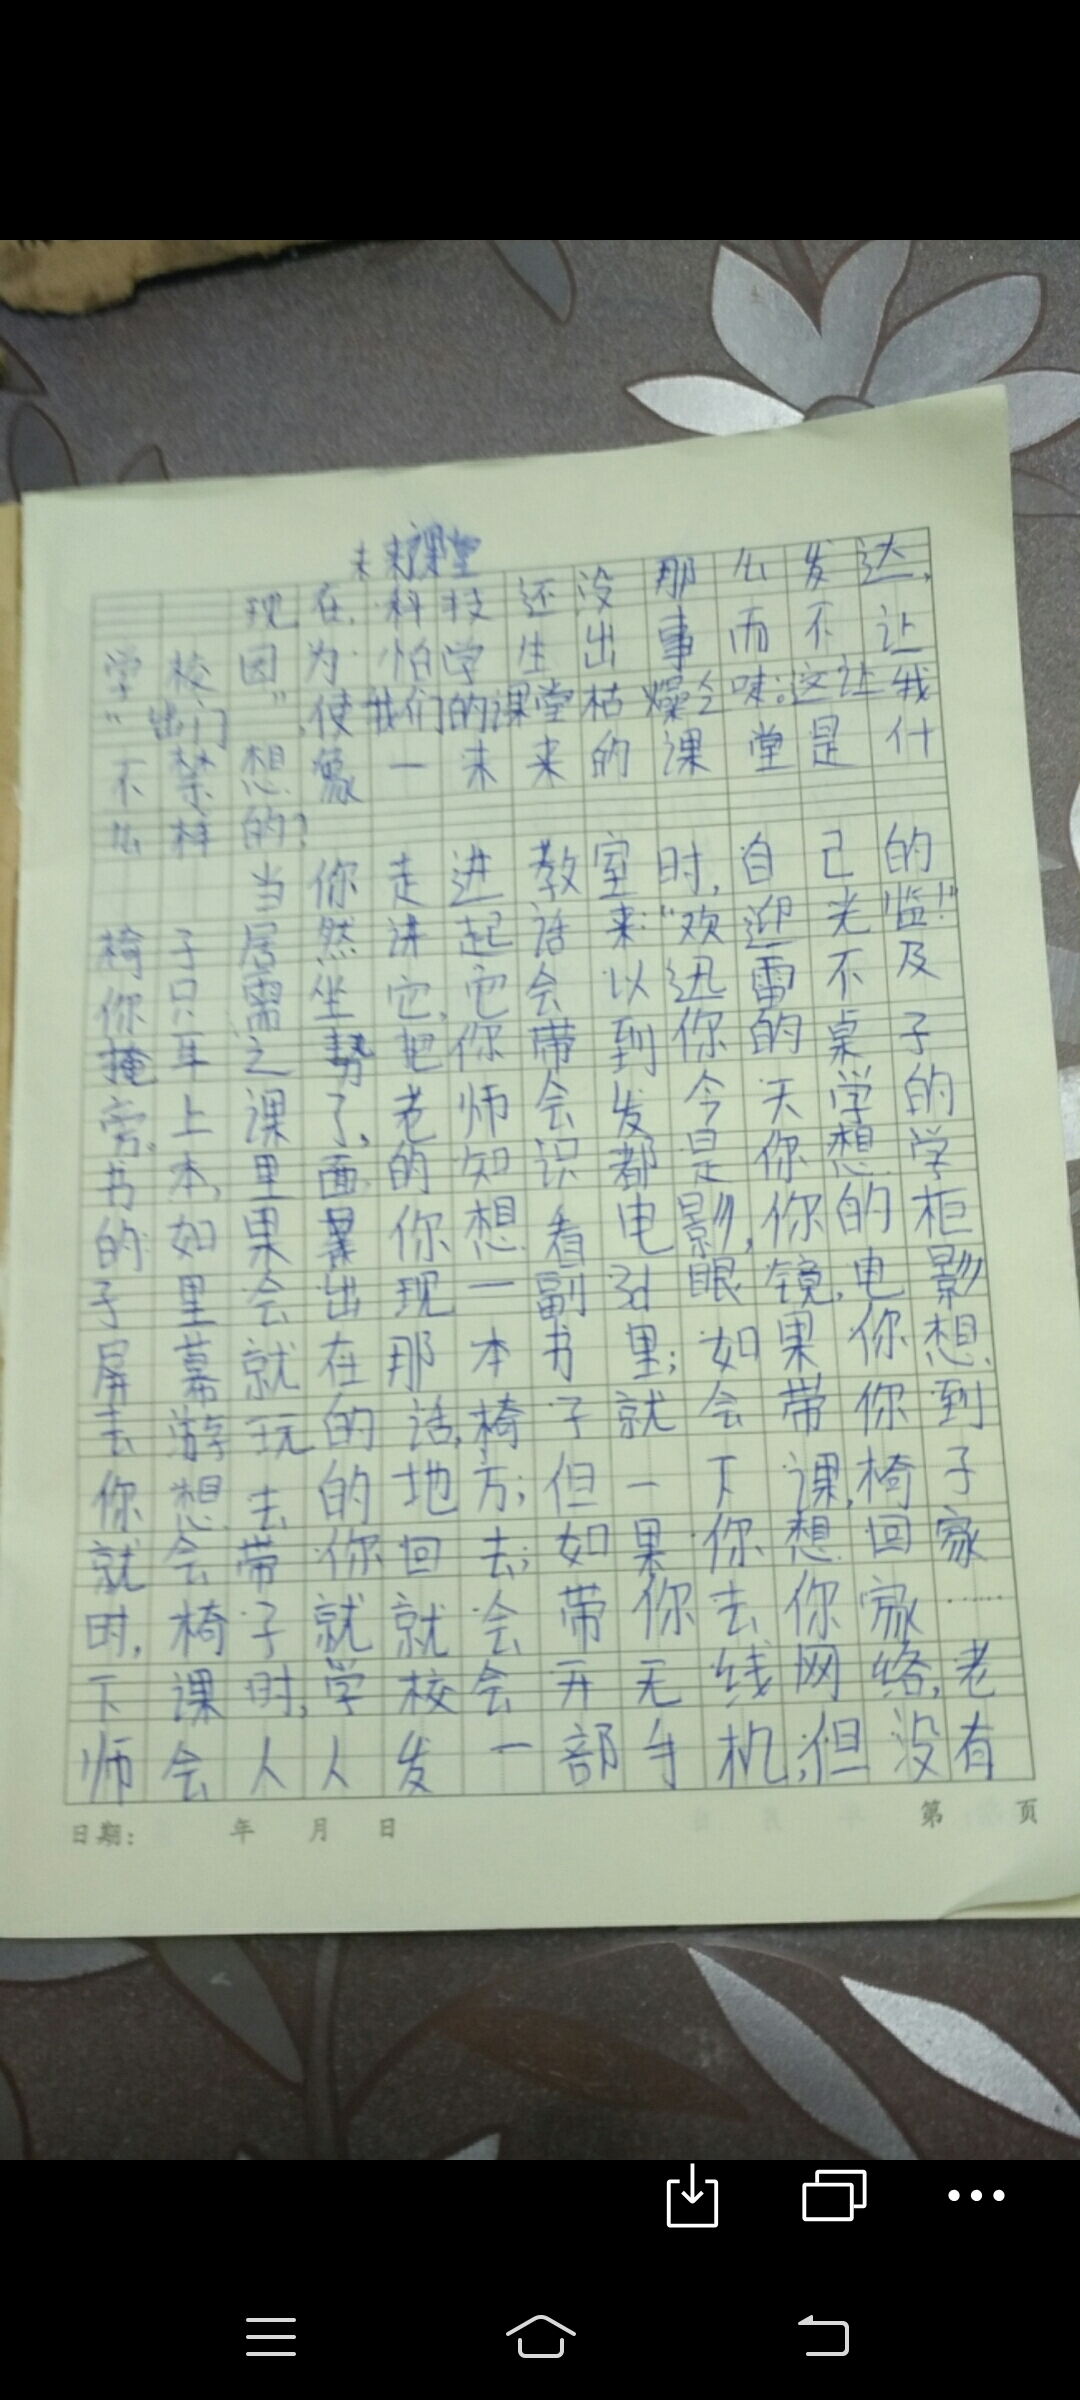 未来课堂
现在,科技还没那么发达,
学校因为怕学生出事而不让
“出门”,使我们的课堂枯燥乏味;这让我
不禁想象一未来的课堂是什
么样的?
当你走进教室时,自己的
椅子居然讲起话来:“欢迎光临!”
你只需坐它,它会以迅雷不及
掩耳之势把你带到你的桌子
旁。上课了,老师会发今天学的
书本,里面的知识都是你想学
的如果你想看电影,你的柜
子里会出现一副3d眼镜,电影
屏幕就在那本书里;如果你想
去游玩的话,椅子就会带你到
你想去的地方;但一下课,椅子
就会带你回去;如果你想回家
时,椅子就就会带你去你家……
下课时,学校会开无线网络,老
师会人人发一部手机,但没有
日期: 年 月 日 第 页